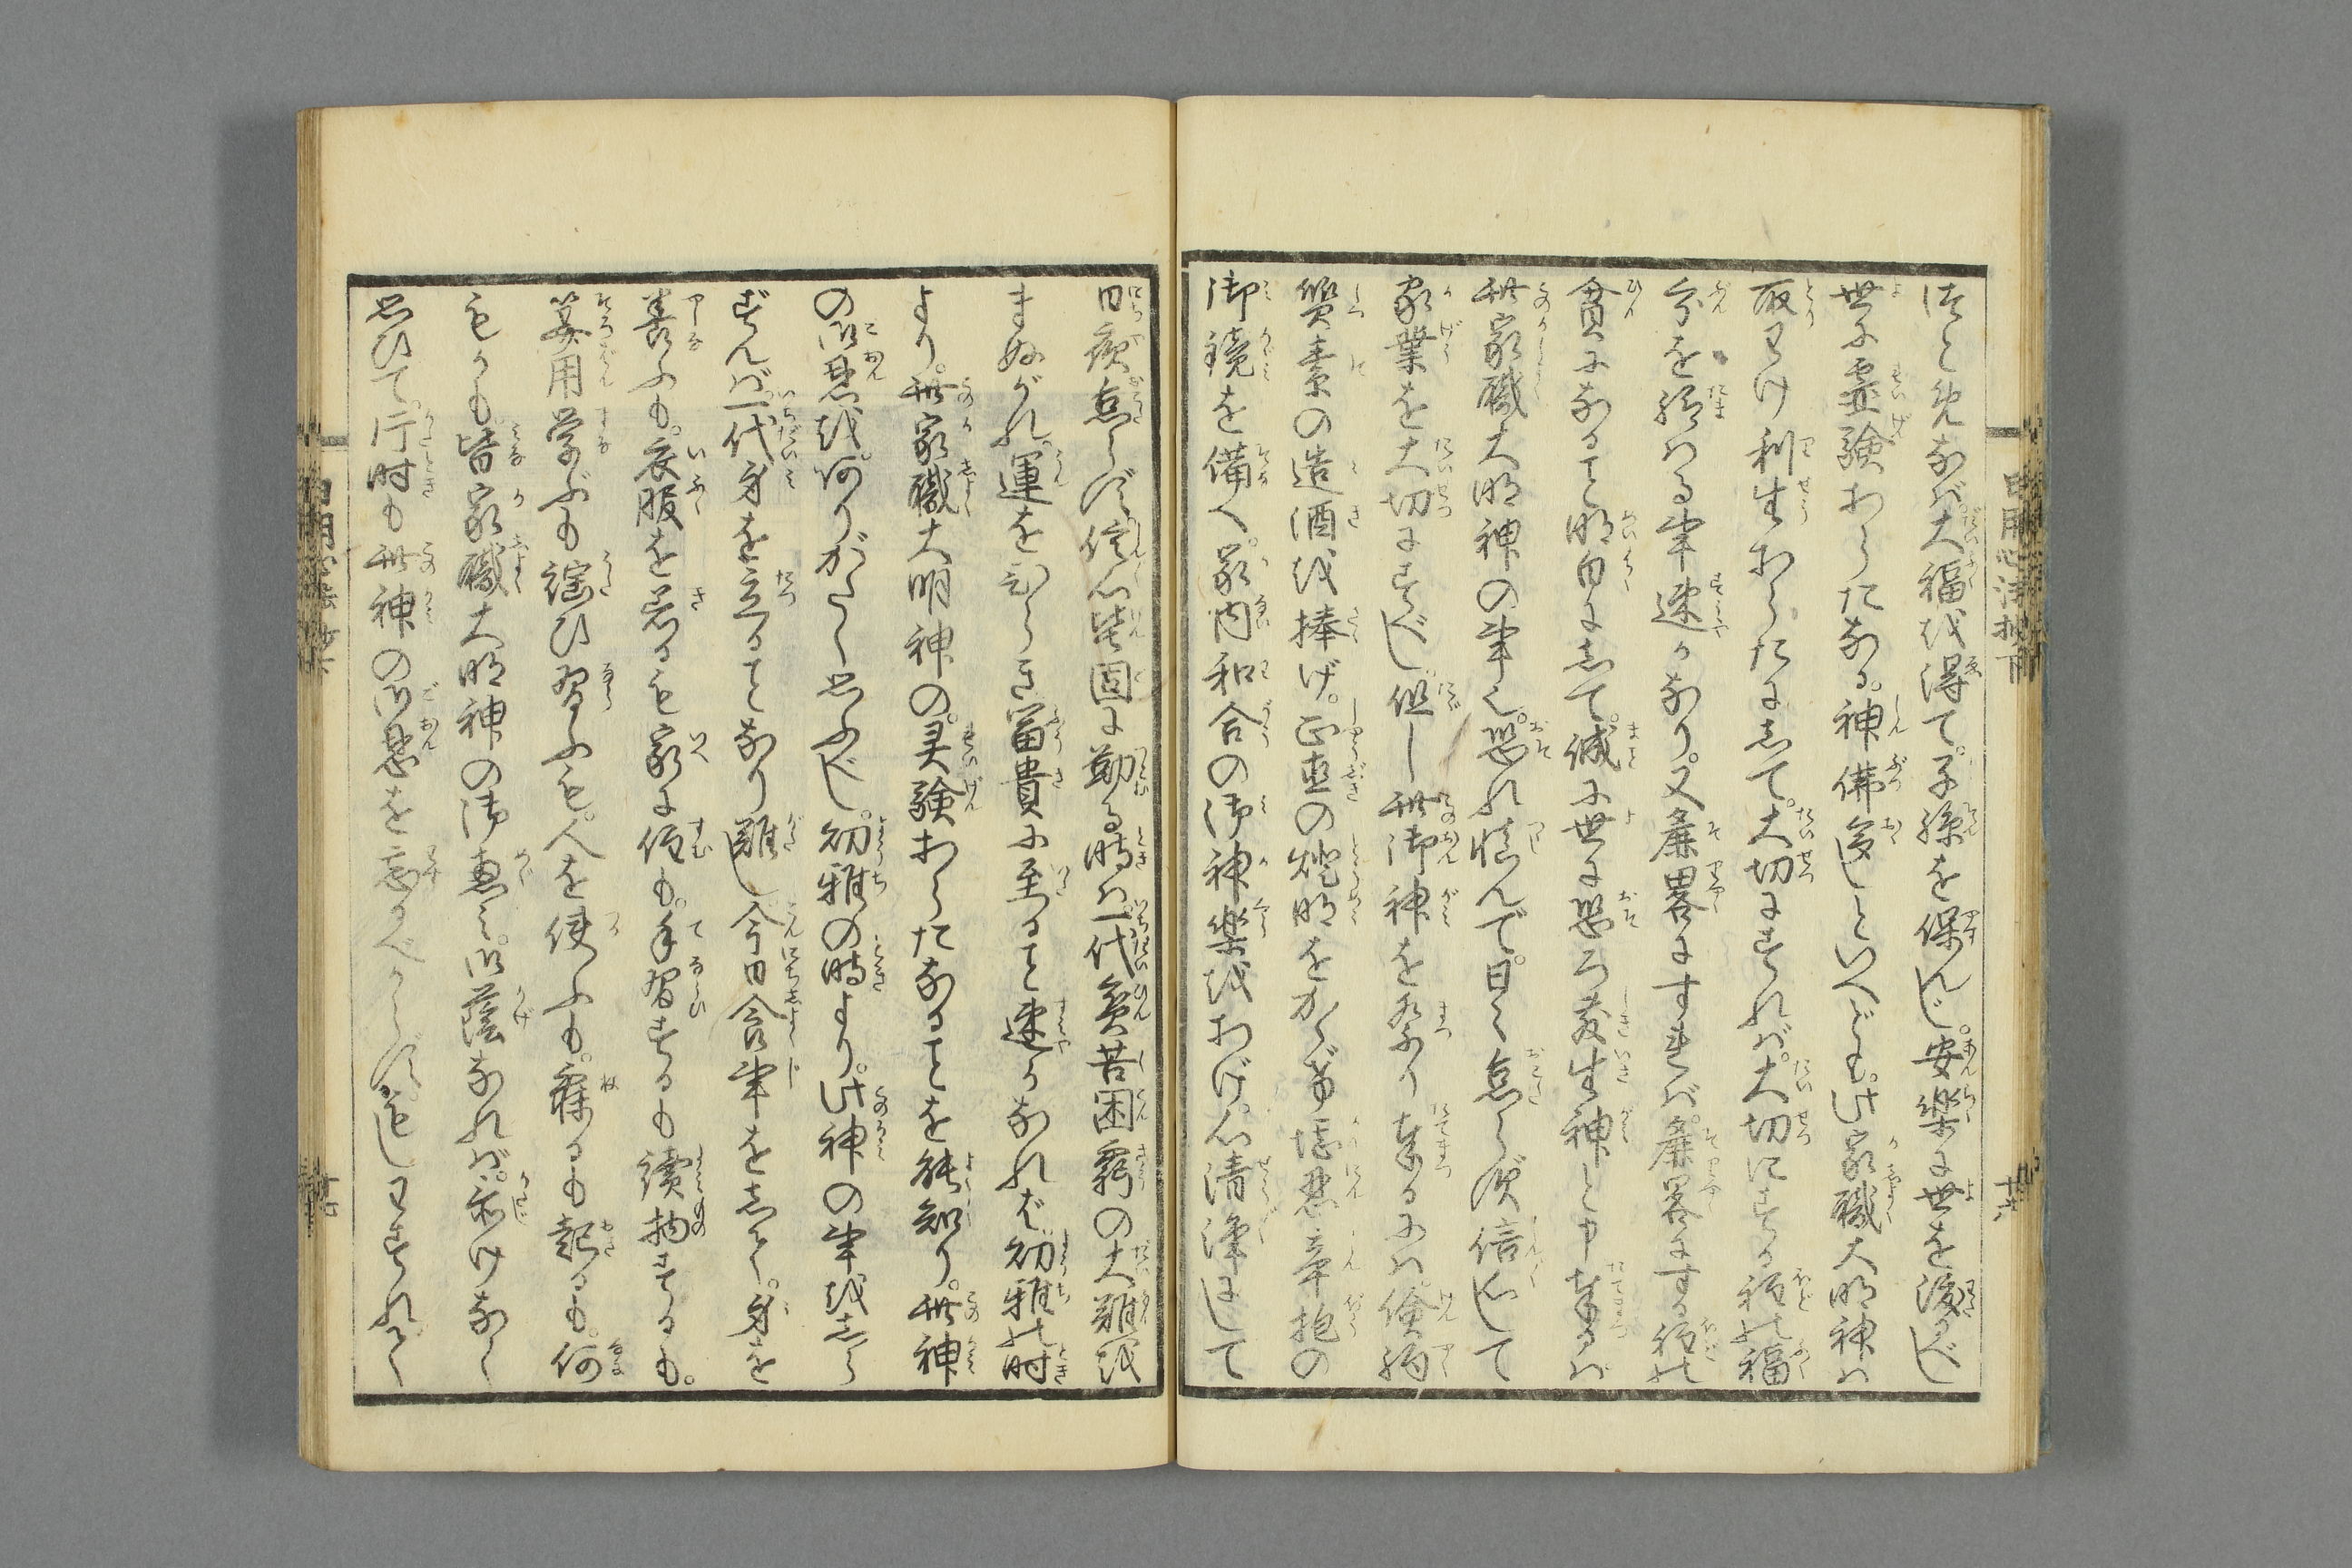 法と免なば。大福を得て。子孫を保んじ。安楽に世を渡るべし
世に霊験あらたなる。神佛多しといへども。此家職大明神ハ
取わけ利生あらたにして。大切にすれバ。大切にする程の福
分を授ける事速かなり。又麁畧にすれバ。麁畧にする程の
貧になること明白にして。誠に世に恐ろ敷生神と申奉るバ
此家職大明神の事也。恐れ慎んで。日く怠らず信心して
家業を大切にすべし。但し此御神を祭り奉るにハ。倹約
質素の造酒を捧げ。正直の燈明をかゝげ堪忍辛抱の
御鏡を備へ。家内和合の御神楽をあげ。心清浄にして
日夜怠らず。信心堅固に勤る時ハ。一代貧苦困窮の大難を
まぬがれ。運をひらき冨貴に至ること速かなれど。幼雅の時
より。此家職大明神の。灵験あらたなることを能知り。此神
の御恩を。ありがたく思ふべし。幼雅の時より。此神の事をしら
ずんバ。一代身を立ることなり難し今日食事をして。身を
養ふも。衣服を着るも家に住も。手習するも読物するも。
算用学ぶも謡ひ習ふも。人を使ふも。寐るも起るも。何
もかも。皆家職大明神の御恵ミ。御蔭なれバ。忝けなく
思ひて。片時も此神の御恩を忘るべからず。もしわすれなく